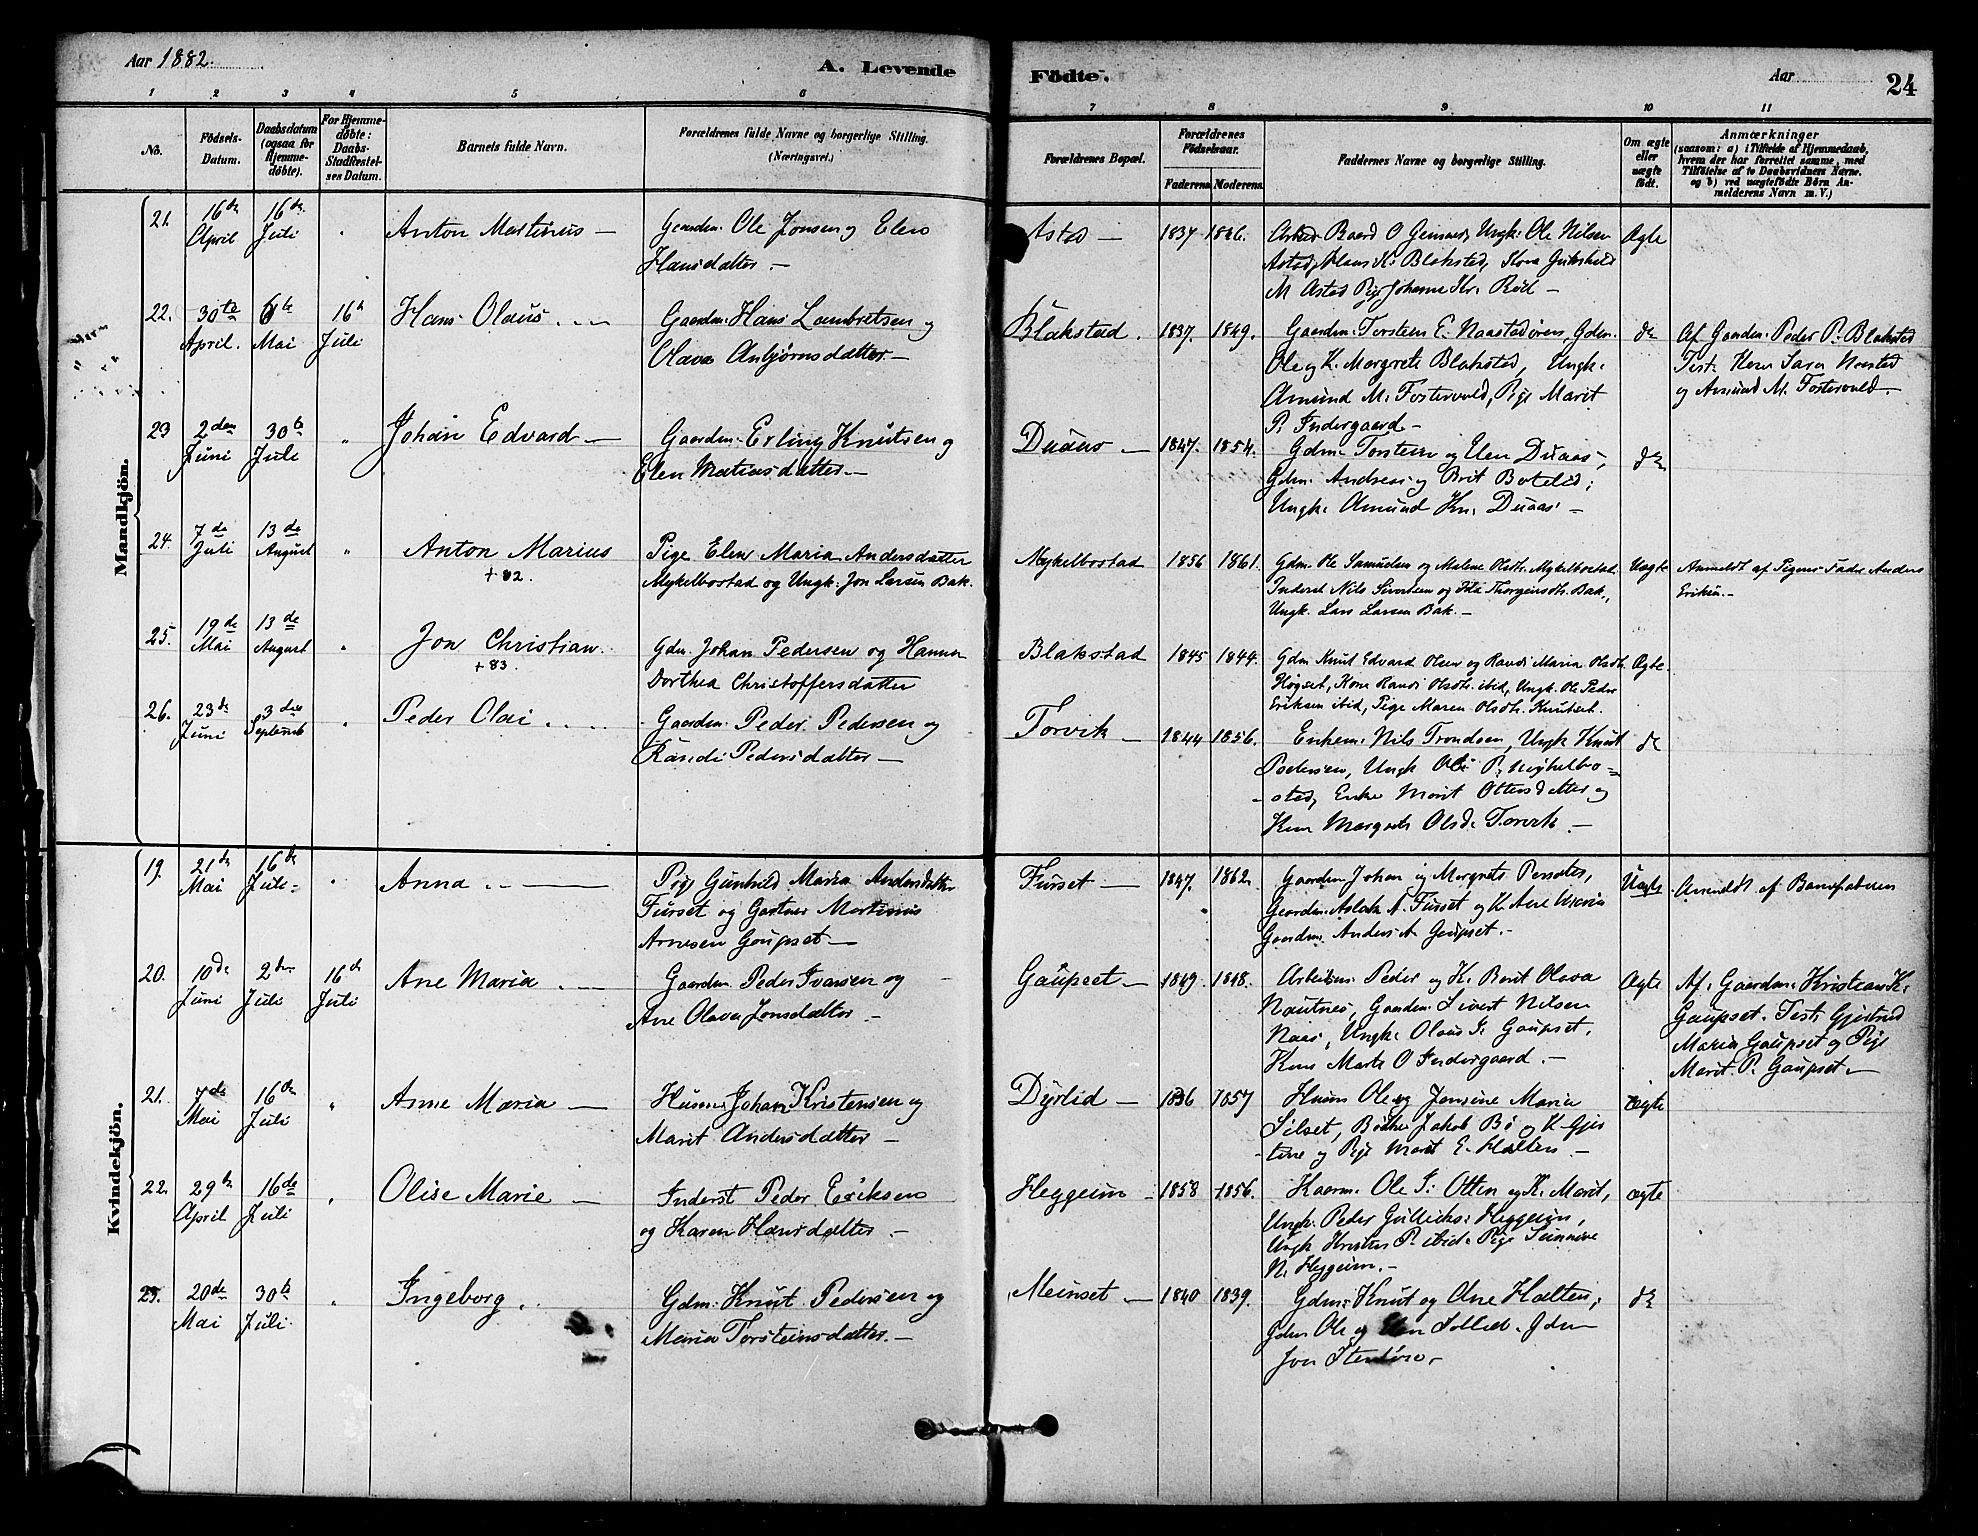 Aar 1882.
A. Levende
Födte.
Aar
24
1 2 3 4 5 6 7 8 9 10 11
No.
Födsels-
Datum.
Daabsdatum
(ogsaa for
Hjemme-
døbte).
For Hjemme-
døbte:
Daabs-
Stadfæstel-
ses Datum.
Barnets fulde Navn.
Forældrenes fulde Navne og borgerlige Stilling.
(Næringsvei.)
Forældrenes Bopæl.
Forældrenes
Födselsaar.
Faderens. Moderens.
Faddernes Navne og borgerlige Stilling.
Om ægte
eller
uægte
födt.
Anmærkninger
(saasom: a) i Tilfælde af Hjemmedaab,
hvem der har forrettet samme, med
Tilföielse af to Daabsvidners Navne.
og b) ved uægtefödte Börn An-
melderens Navn m. V.)
Mandkjön.
21. 16de April 16de Juli " Anton Martinus —
Gaardm. Ole Jonsen og Elen
Hansdatter. —
Astad — 1837 1846.
Ungk: Ole Nilsen
Astad, Hans K. Blakstad, Kone
M Astad Pige Johanne Kr. Rød —
Ægte
22. 30te April. 6te Mai 16de Juli Hans Olaus. —
Gaardm. Hans Lambretsen og
Olava Anbjørnsdatter —
Blakstad. 1837. 1849.
Gaardm: Torstein E. Naastadøren, Gdm.
Ole og K. Margrete Blakstad, Ungk.
Amund M. Fostervold, Pige Marit
P. Indergaard —
do
Af Gaardm: Peder P. Blakstad
Test: Kone Sara
og Amund M. Fostervold. —
23 2den Juni 30te Juli " Johan Edvard —
Gaardm. Erling Knutsen og
Elen Matiasdatter —
Duaas — 1847. 1854.
Gdm. Torstein og Elen Duaas,
Gdm. Andreas og Brit Botelid;
Ungk. Amund Kn. Duaas —
do
24. 7de Juli 13de August " Anton Marius
+82.
Pige Elen Maria Andersdatter
Mykelbostad og Ungk. Jon Larsen Bak.
Mykelbostad 1856 1861.
Gdm. Ole Samuelsen og Malene Olsdtr. Mykelbostad
Inderst Nils Sivertsen og Thorgersdtr. Bak,
Ungk. Lars Larsen Bak. —
Uægte
Anmeldt af Pigens Fader Anders
Eriksen. —
25. 19de Mai 13de August " Jon Christian.
+83.
Gdm. Johan Pedersen og Hanna
Dorthea Christoffersdatter
Blakstad 1845 1849.
Gdm Knut Edvard Olsen og Randi Maria Olsdtr.
Høgset, Kone Randi Olsdtr. ibid, Ungk. Ole Peder
Eriksen ibid, Pige Maren Olsdtr. Knutset.
Ægte.
26. 23de Juni 3die Septemb " Peder Olai. —
Gaardm: Peder Pedersen og
Randi Pedersdatter —
Torvik — 1844 1856.
Enkem: Nils Trondsen, Ungk Knut
Pedersen, Ungk Ole P. Mykelbo-
-stad, Enke Marit Ottersdatter og
Kone Margrete Olsdr Torvik. —
do
Kvindekjön.
19. 21de Mai 16de Juli — " Anna. —
Pige Gunhild Maria Andersdatter
Furset og Gartner Martinus
Arnesen Gaupset —
Furset — 1847. 1862.
Gaardm Johan og Margrete
Gaardm. Aslak A. Furset og K. Ane
Gaardm. Anders A Gaupset. —
Uægte
Anmeldt af Barnefaderen
20. 10de Juni 2den Juli 16de Juli Ane Maria. —
Gaardm: Peder Ivarsen og
Ane Olava Jonsdatter. —
Gaupset — 1849. 1848.
Peder og K. Berit Olava
Nautnes, Gaardm: Sivert Nilsen
Naas, Ungk. Olaus I. Gaupset,
Kone Marte O Indergaard. —
Ægte
Af. Gaardm: Kristian K.
Gaupset. Test: Gjertrud
Maria Gaupset og Pige
Marit. P. Gaupset. —
21. 7de Mai 16de Juli " Anne Maria —
Husm: Johan Kristensen og
Marit Andersdatter —
Dyrlid — 1836 1857
Husm Ole og Jonsine Maria
Silset, Jakob Bø og K. Gjer-
-tine og Pige Marit E. Halten. —
Ægte
22. 29de April 16de Juli " Olise Marie —
Inderst Peder Eriksen
og Karen Hansdatter. —
Heggeim — 1858 1856.
Ole I. Otten og K. Marit,
Ungk: Peder Gulliks: Heggeim,
Ungk P. ibid: Pige
N. Heggeim. —
ægte
23. 20de Mai 30te Juli " Ingeborg. —
Gdm: Knut Pedersen og
Maria Torsteinsdatter. —
Meinset — 1840 1839.
Gdm: Knut og Ane Halten;
Gdm Ole og Elen Solli Gdm
Jon —
do